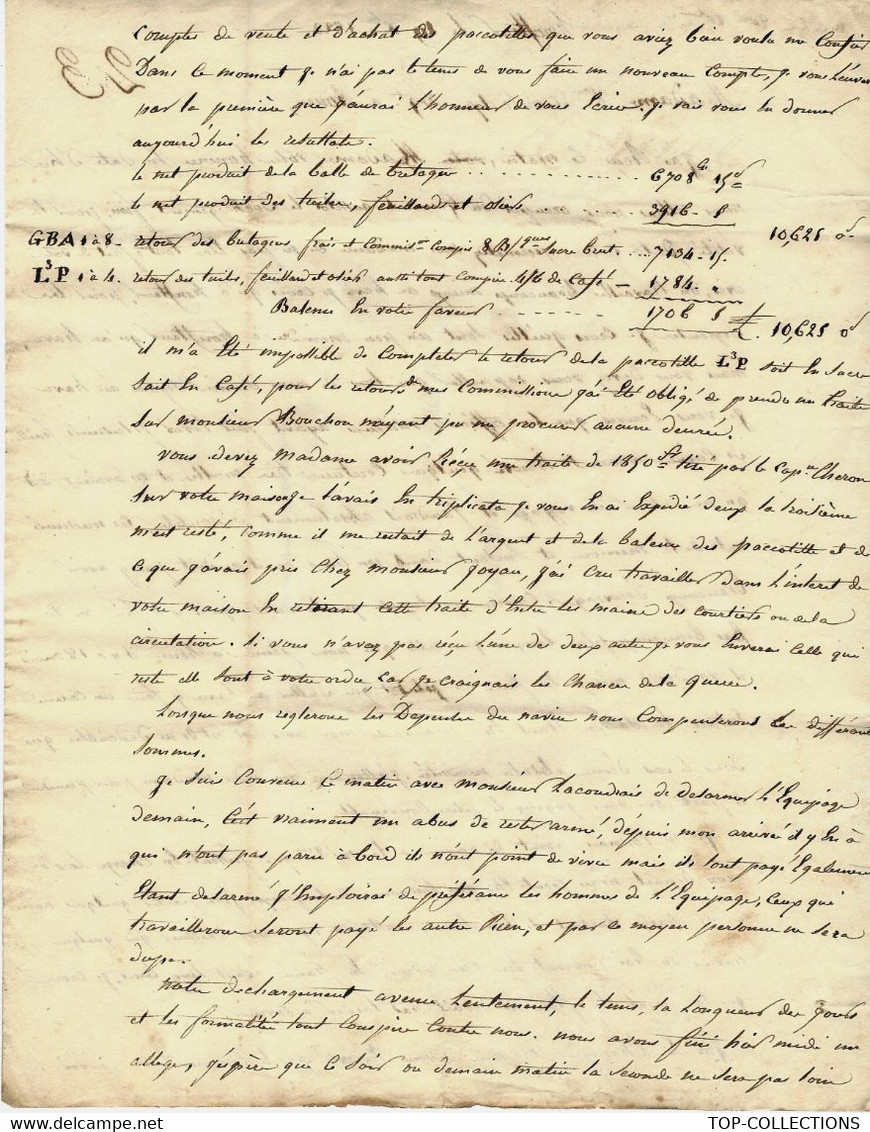 Comptes de vente et d'achat des paccotilles que vous aviez bien voulu me Confier
Dans le moment je n'ai pas le tems de vous faire un nouveau Compte, je vous l'enver
par la première que j'aurai l'honneur de vous Ecrire. je vais vous En donner
aujourd'hui les resultats.
le net produit de la balle de bretagne .............. 6708 15
le net produit des tuiles, feuillards et osiers .. ...... 3916 - 5
10,625 0
GBA 1 à 8 - retour des bretagnes frais et Commis.on Compris 8 B/ques Sucre brut.... 7134 - 15.
L3P 1 à 4. retour des tuiles, feuillard et osiers aussi tout Compris 4/6 de Café - 1784. "
Balence En votre faveur .......... 1706 5
£. 10,625 0
il m'a Eté impossible de Completer le retour de la paccotille L3P soit En Sucre
Soit En Café, pour les retours de mes Commissions j'ai Eté obligé de prendre un traite
Sur monsieur Bouchon n'ayant pu me procurer aucune denrée.
vous devez madame avoir Réçue une traite de 1850 tiré par le Cap.ne Cheron
Sur votre maison je l'avais En triplicata je vous En ai Expedié deux la troisième
m'est resté, comme il me restait de l'argent et de la balence des paccotille et de
ce que j'avais pris Chez monsieur joyau, j'ai Cru travailler dans l'interet de
votre maison En retirant cette traite d'Entre les mains des courtiers ou de la
circulation. Si vous n'avez pas réçu l'une des deux autre je vous Enverai Celle qui
reste elle sont à votre ordre, Car je Craignais les Chances de la guerre.
Lorsque nous reglerons les Depenses du navire nous Compenserons les différent
Sommes.
je Suis Convenu ce matin avec monsieur Lacoudrais de desarmer l'Equipage
demain, C'est vraiment un abus de rester armé, dépuis mon arrivée il y En à
qui n'ont pas parue à bord ils n'ont point de vivre mais ils Sont payé Egalement
Etant desarmé j'Emploirai de préférance les hommes de l'Equipage, Ceux qui
travailleron Seront payé les autre Rien, et par ce moyen personne ne Sera
dupe.
notre dechargement avence Lentement, le tems, la Longueur des jours
et les formalités tout Conspire Contre nous. nous avons fini hier midi une
allege, j'éspère que ce Soir ou demain matin la Seconde ne Sera pas loin
TOP-COLLECTIONS